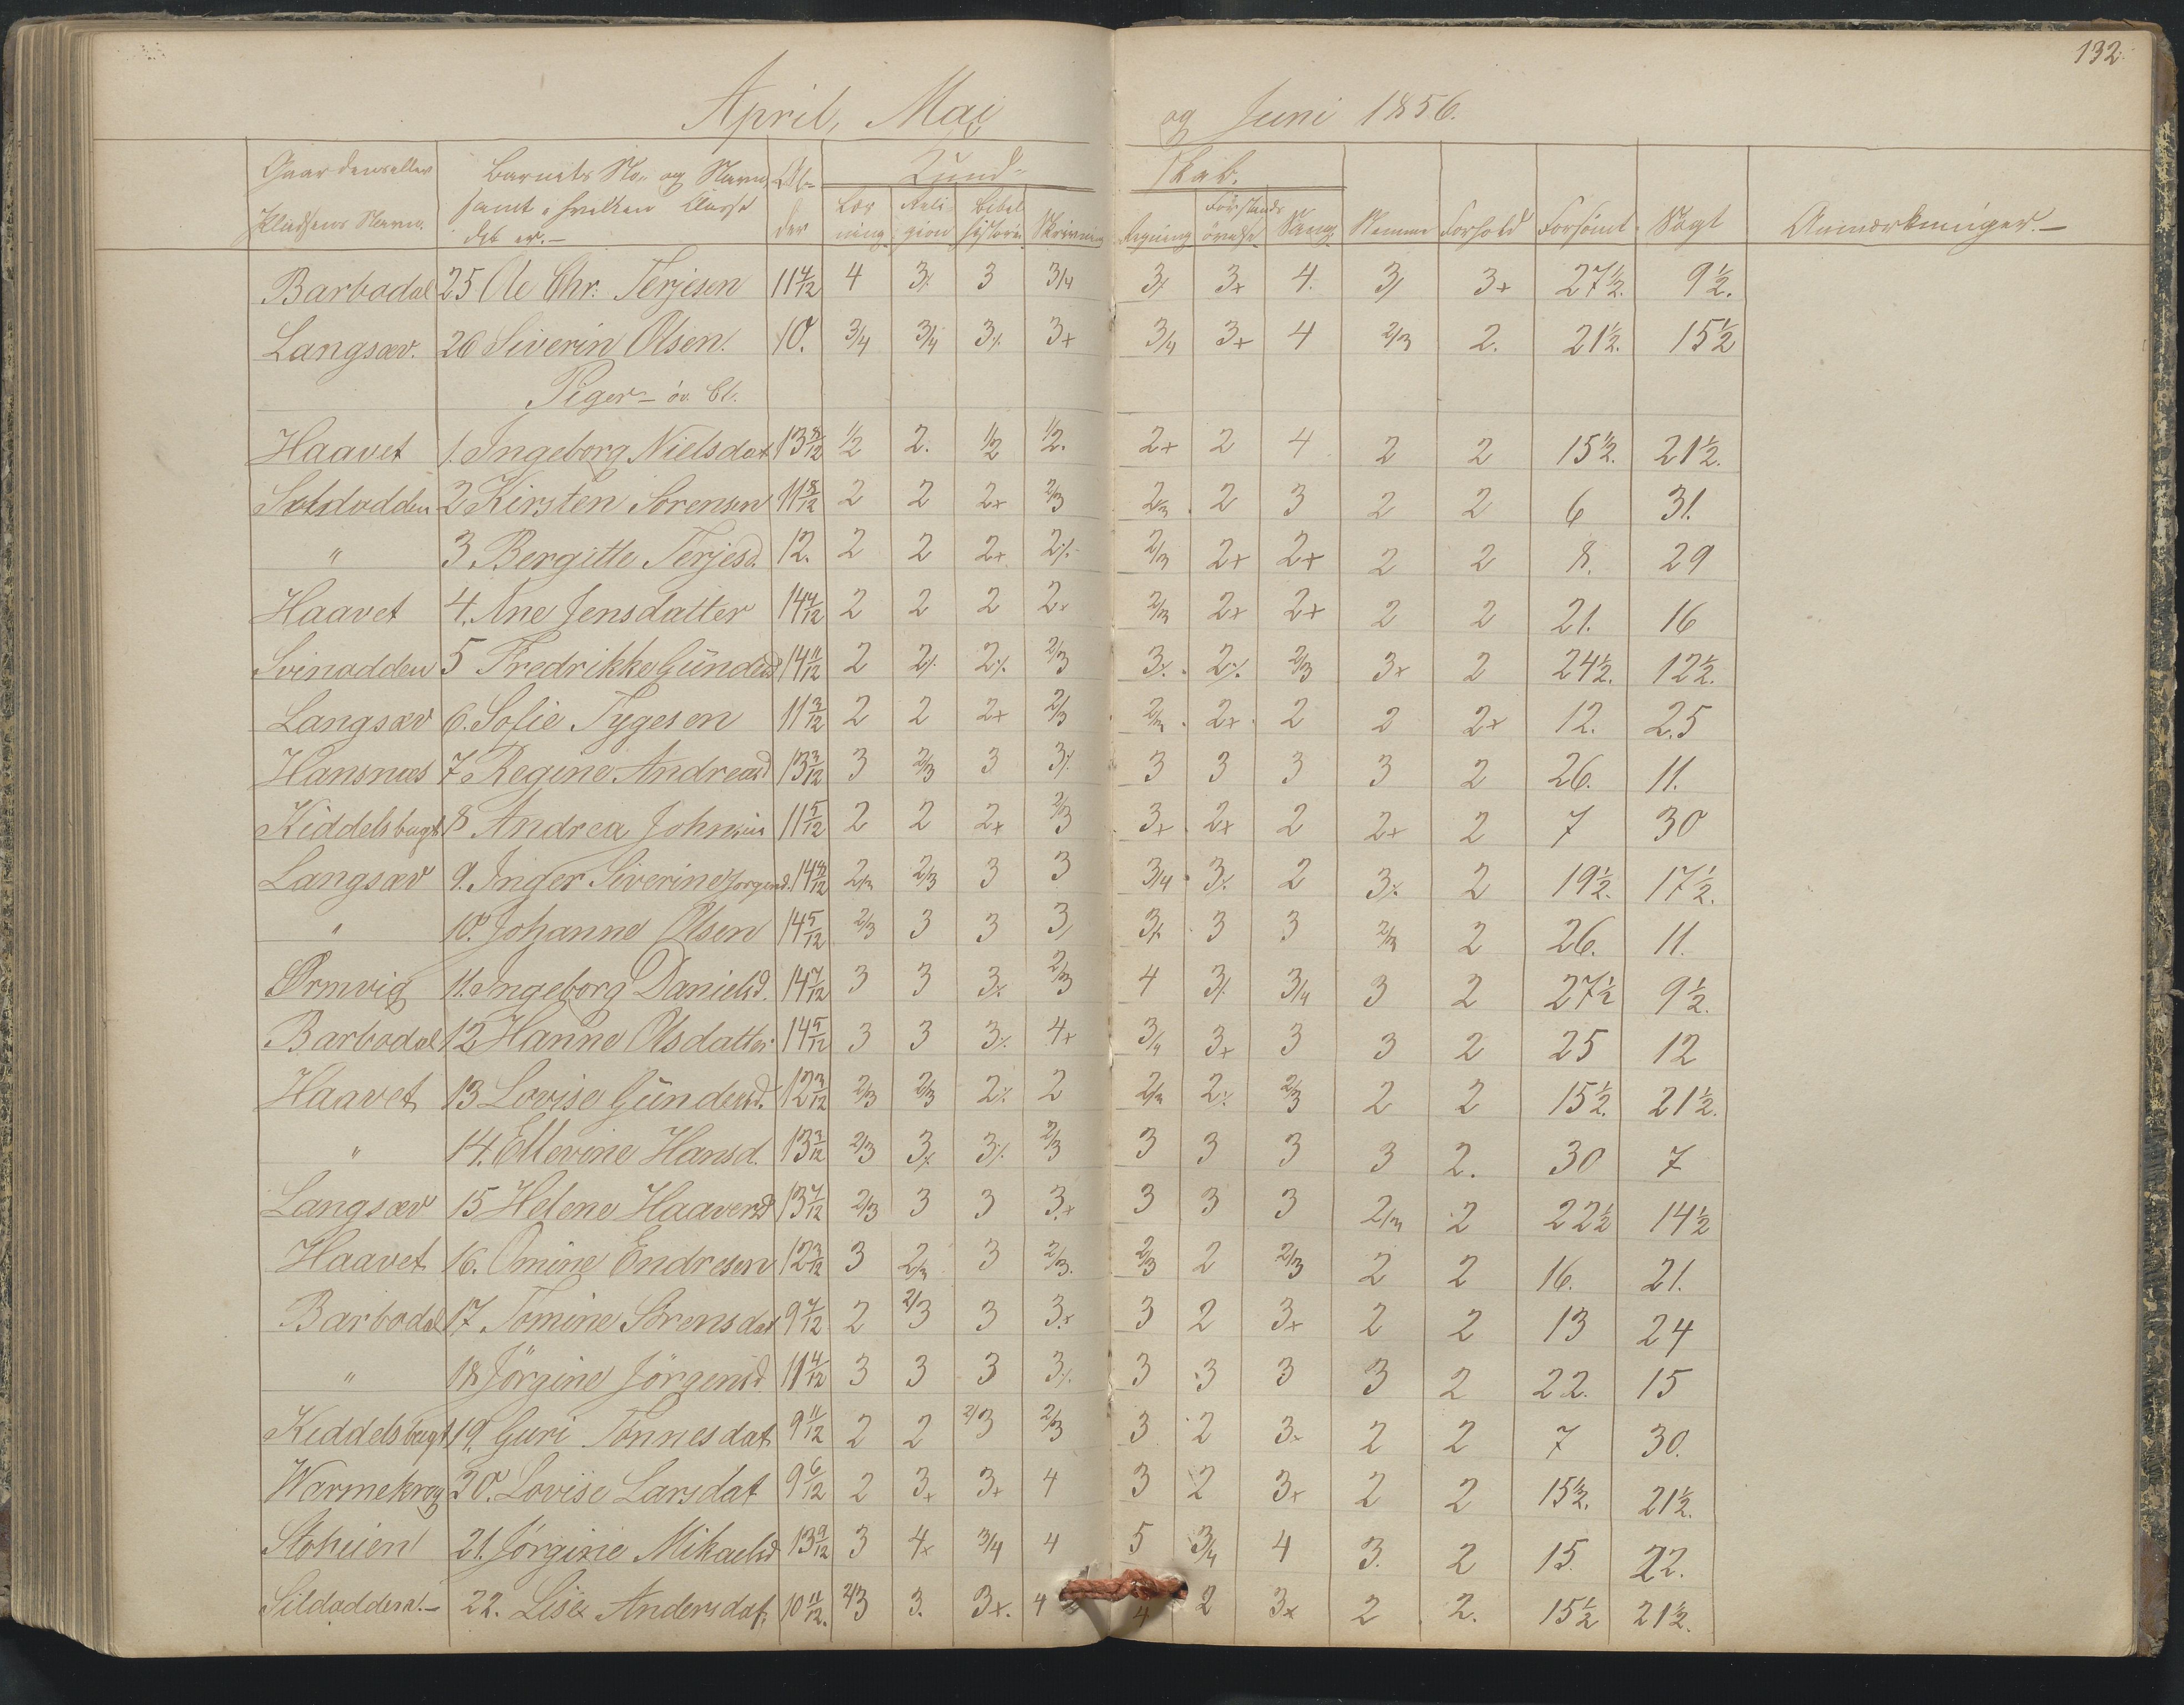 132.
April, Mai og Juni 1856.
Gaardens eller Pladsens Navn. Barnets No. og Navn, samt i hvilken Classe det er.- Alder Kund- skab. 
Læsning Religion Bibelhistorie Skrivning Regning Forstandsøvelse Sang Nemme Forhold Forsömt Sögt Anmærkninger.-
Barbodal 25 Ole Chr. Terjesen 11 4/12 4 3⁒ 3 3/4 3⁒ 3+ 4. 3/ 3+ 27 1/2. 9 1/2.
Langsæv. 26 Siverin Olsen. 10. 3/4 3/4 3⁒ 3+ 3/4 3+ 4 2/3 2. 21 1/2. 15 1/2
Piger - öv. Cl.
Haavet 1. Ingeborg Nielsdat 13 8/12 1/2 2. 1/2 1/2. 2+ 2 4 2 2 15 1/2. 21 1/2.
2 Kirsten Sorensen 11 8/12 2 2 2+ 2/3 2/3 2 3 2 2 6 31.
" 3. Bergitte Terjesd. 12. 2 2 2+ 2⁒ 2/3 2+ 2+ 2 2 8. 29
Haavet 4. Ane Jensdatter 14 4/12 2 2 2 2+ 2/3 2+ 2+ 2 2 21. 16
Svinodden 5 Fredrikke Gündersd 14 11/12 2 2⁒ 2⁒ 2/3 3⁒ 2⁒ 2/3 3+ 2 24 1/2. 12 1/2.
Langsæv 6. Sofie Tygesen 11 3/12 2 2 2+ 2/3 2/3 2+ 2 2 2+ 12. 25
Hansnæs 7 Regine Andreasd 13 3/12 3 2/3 3 3⁒ 3 3 3 3 2 26. 11.
Kiddelsbugt 8 Andrea Johnsen 11 5/12 2 2 2+ 2/3 3+ 2+ 2 2+ 2 7 30
Langsæv 9. Inger Siverine Jorgensd. 14 8/12 2/3 2/3 3 3 3/4 3⁒ 2 3⁒ 2 19 1/2. 17 1/2.
" 10. Johanne Olsen 14 5/12 2/3 3 3 3/ 3⁒ 3 3 2/3 2 26. 11.
Ormvig 11. Ingeborg Danielsd. 14 7/12 3 3 3⁒ 2/3 4 3⁒ 3/4 3 2 27 1/2 9 1/2.
Barbodal 12 Hanne Olsdatter 14 5/12 3 3 3⁒ 4+ 3/4 3+ 3 3 2 25 12
Haavet 13 Lovise Gündersd. 12 3/12 2/3 2/3 2⁒ 2 2/3 2⁒ 2/3 2 2 15 1/2. 21 1/2.
" 14. Ellevine Hansd. 13 3/12 2/3 3⁒ 3⁒ 2/3 3 3 3 3 2. 30 7
Langsæv 15 Helene Haavensd 13 7/12 2/3 3 3 3+ 3 3 3 2/3 2 22 1/2 14 1/2
Haavet 16. Omine Endresen 12 3/12 3 2/3 3 2/3. 2/3 2 2/3 2 2 16. 21.
Barbodal 17 Tomine Sörensdat 9 7/12 2 2/3 3 3+ 3 2 3+ 2 2 13 24
" 18 Jörgine Jörgensd. 11 4/12 3 3 3 3⁒ 3 3 3 3 2 22. 15
Kiddelsbugt 19. Guri Tönnesdat 9 11/12 2 2 2/3 2/3 3 2 3+ 2 2 7 30.
Warmekrog 20. Lovise Larsdat 9 6/12 2 3+ 3+ 4 3 2 3+ 2 2 15 1/2. 21 1/2.
21. Jörgine Mikaelsd 13 9/12 3 4+ 3/4 4 5 3/4 4 3. 2 15. 22.
Sildodden.- 22. Lise Andersdat. 10 11/12. 2/3 3. 3+. 4 4 2 3+ 2 2. 15 1/2 21 1/2.